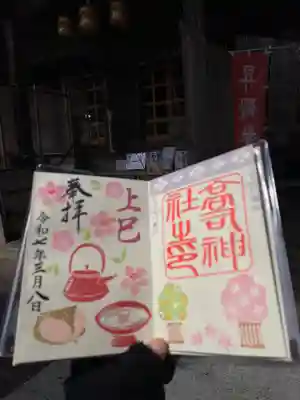 奉拝
上巳
令和七年三月八日
高司神
社之印